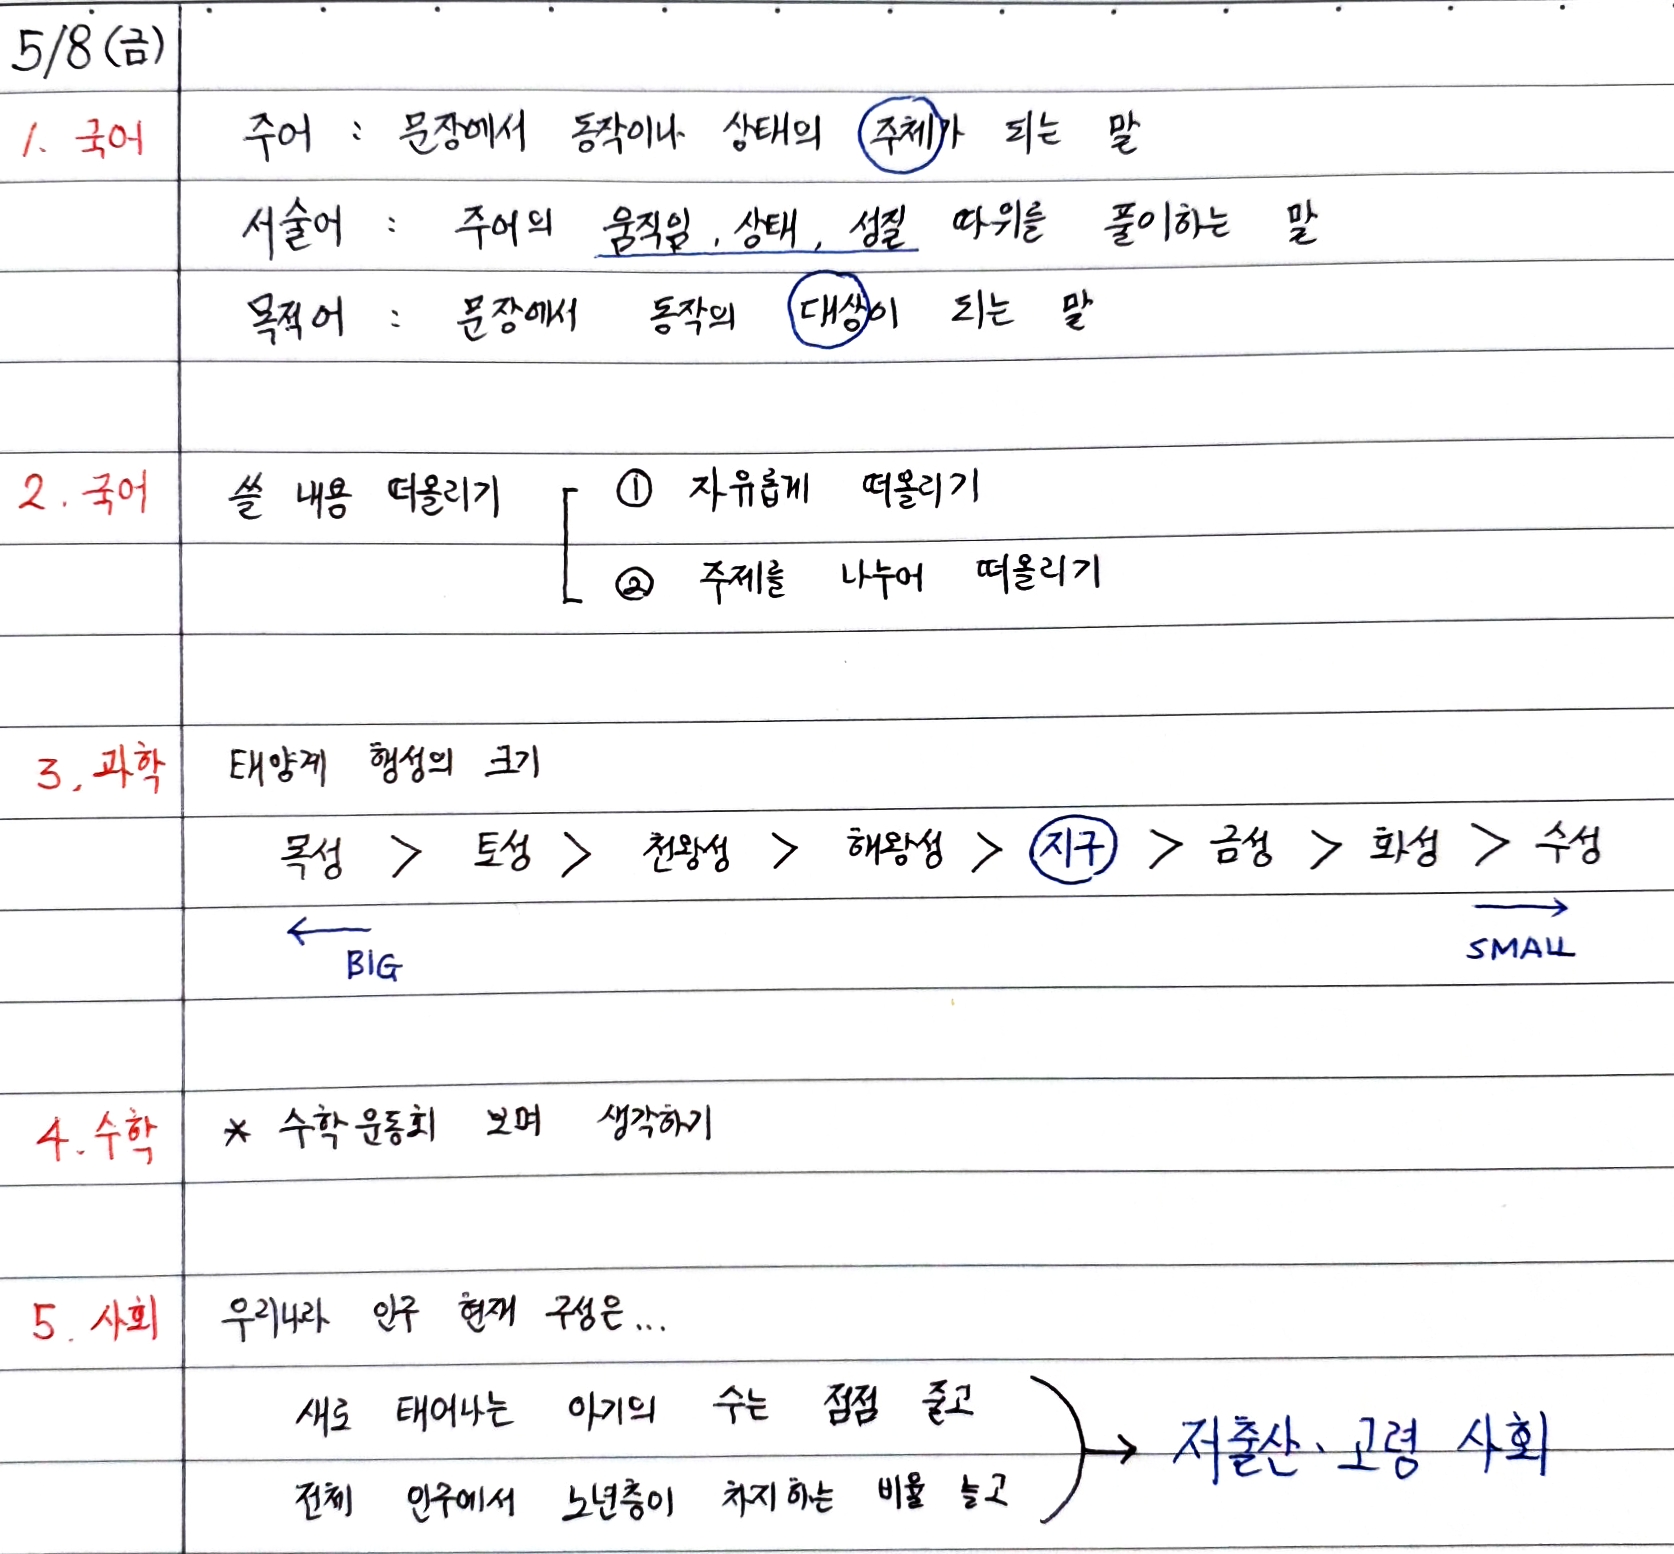 5/8(금)
1. 국어 주어 : 문장에서 동작이나 상태의 주체가 되는 말
서술어 : 주어의 움직임, 상태, 성질 따위를 풀이하는 말
목적어 : 문장에서 동작의 대상이 되는 말
2. 국어 쓸 내용 떠올리기 ① 자유롭게 떠올리기
② 주제를 나누어 떠올리기
3. 과학 태양계 행성의 크기
목성 > 토성 > 천왕성 > 해왕성 > 지구 > 금성 > 화성 > 수성
← BIG → SMALL
4. 수학 * 수학 운동회 보며 생각하기
5. 사회 우리나라 인구 현재 구성은...
새로 태어나는 아기의 수는 점점 줄고
→ 저출산·고령 사회
전체 인구에서 노년층이 차지하는 비율 늘고